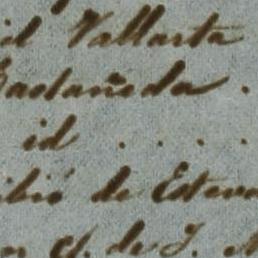 id Vallarta
Castañeda .
id . . . .
ibió de Esteva
en Cj. de J. M